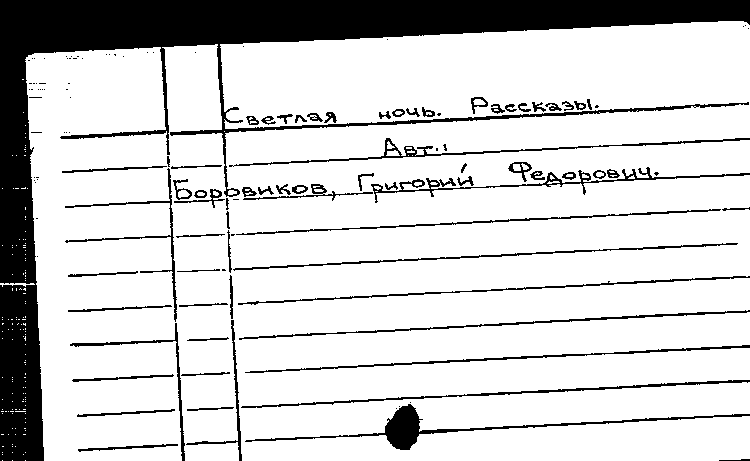 Светлая ночь. Рассказы.
Авт.:
Боровиков, Григорий Федорович.